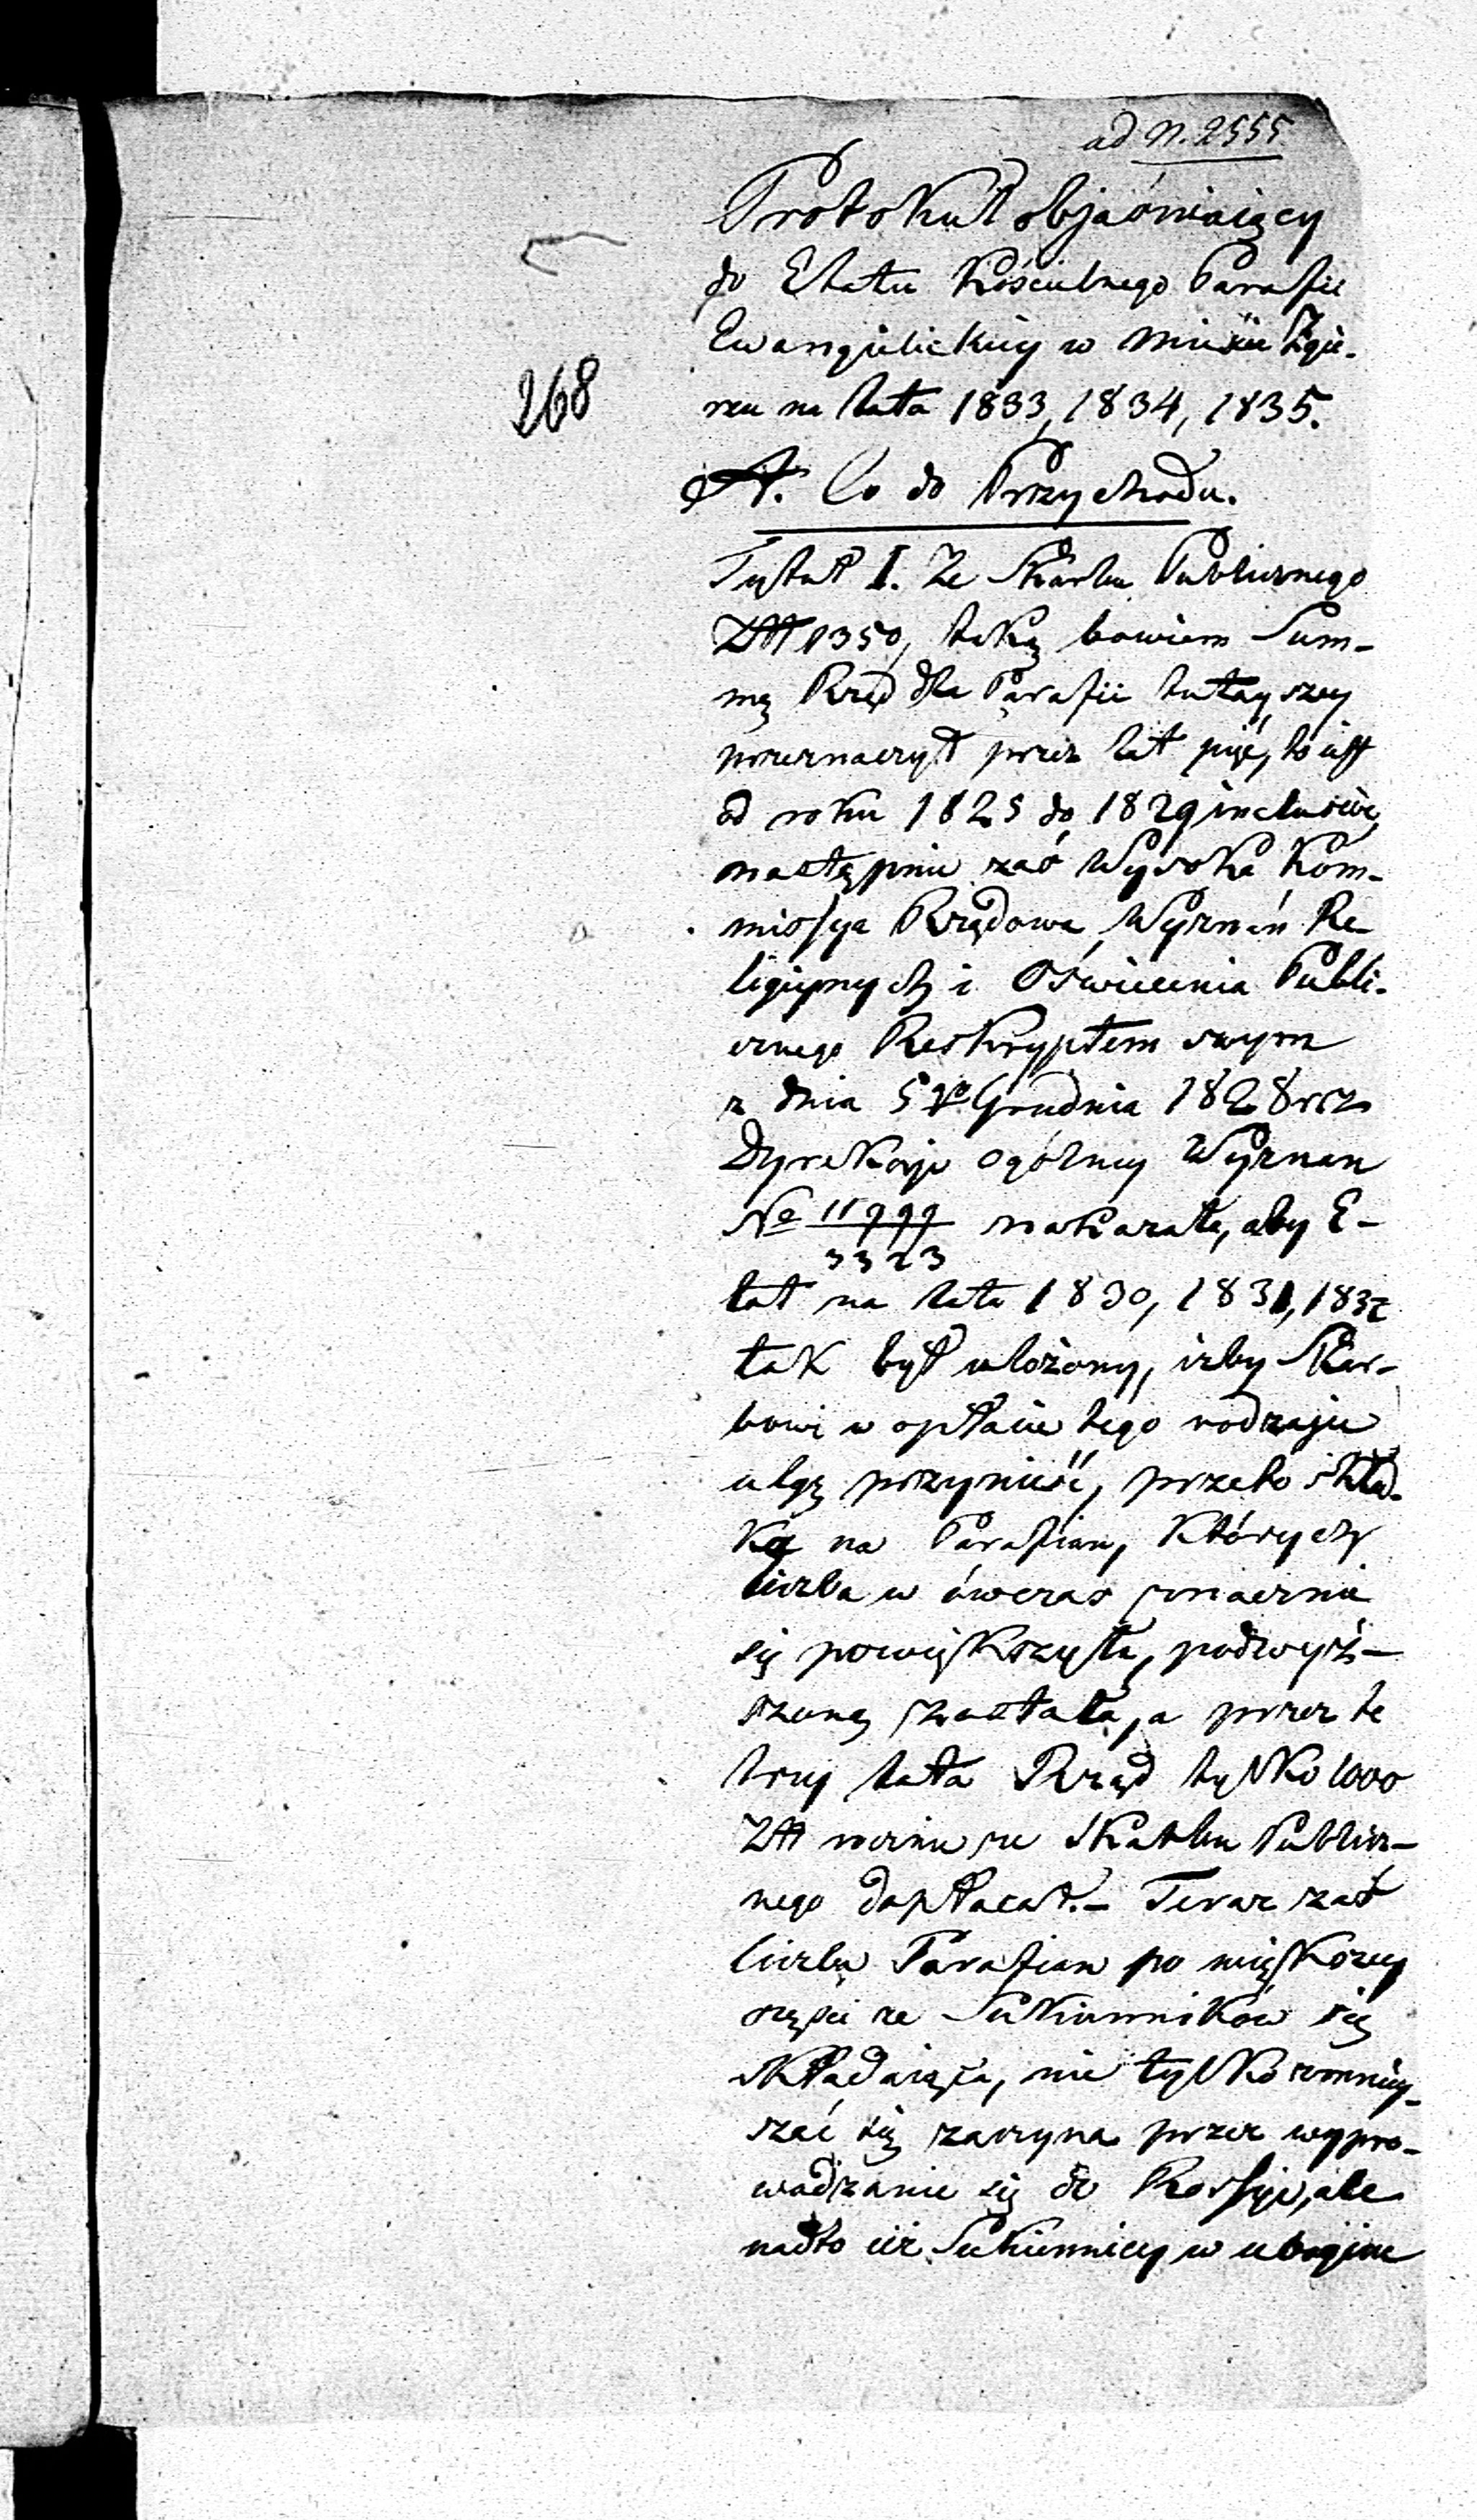 ad N. 2555
Protokuł objaśniaiący
do Etatu Kościelnego Parafii
Ewangielickiey w mieście Zgie-
rzu na lata 1833, 1834, 1835.
268
A. Co do Przychodu.
Tytuł I. Ze Skarbu Publicznego
Złł 1350, taką bowiem Sum-
mę Rząd dla Parafii tutayszey
przeznaczył przez lat pięć, to iest
od roku 1825 do 1829 inclusive,
następnie zaś Wysoka Kom-
missya Rządowa Wyznań Re-
ligiynych i Oświecenia Publi-
cznego Reskryptem swym
z dnia 5go Grudnia 1828 rcz
Dyrekcyi ogólney Wyznań
No 11999/3323 nakazała, aby E-
tat na lata 1830, 1831, 1832
tak był ułożony, iżby Skar-
bowi w opłacie tego rodzaju
ulgę przynieść, przeto skład-
ka na Parafian, których
liczba w ówczas znacznie
się powiększyła, podwyż-
szoną została, a przez te
trzy lata Rząd tylko 1000
Złł rocznie ze Skarbu Publicz-
nego dopłacał.- Teraz zaś
liczba Parafian po większey
części ze Sukienników się
składaiąca, nie tylko zmniey-
szać się zaczyna przez wypro-
wadzanie się do Rossyi, ale
nadto iż Sukiennicy w ubogim